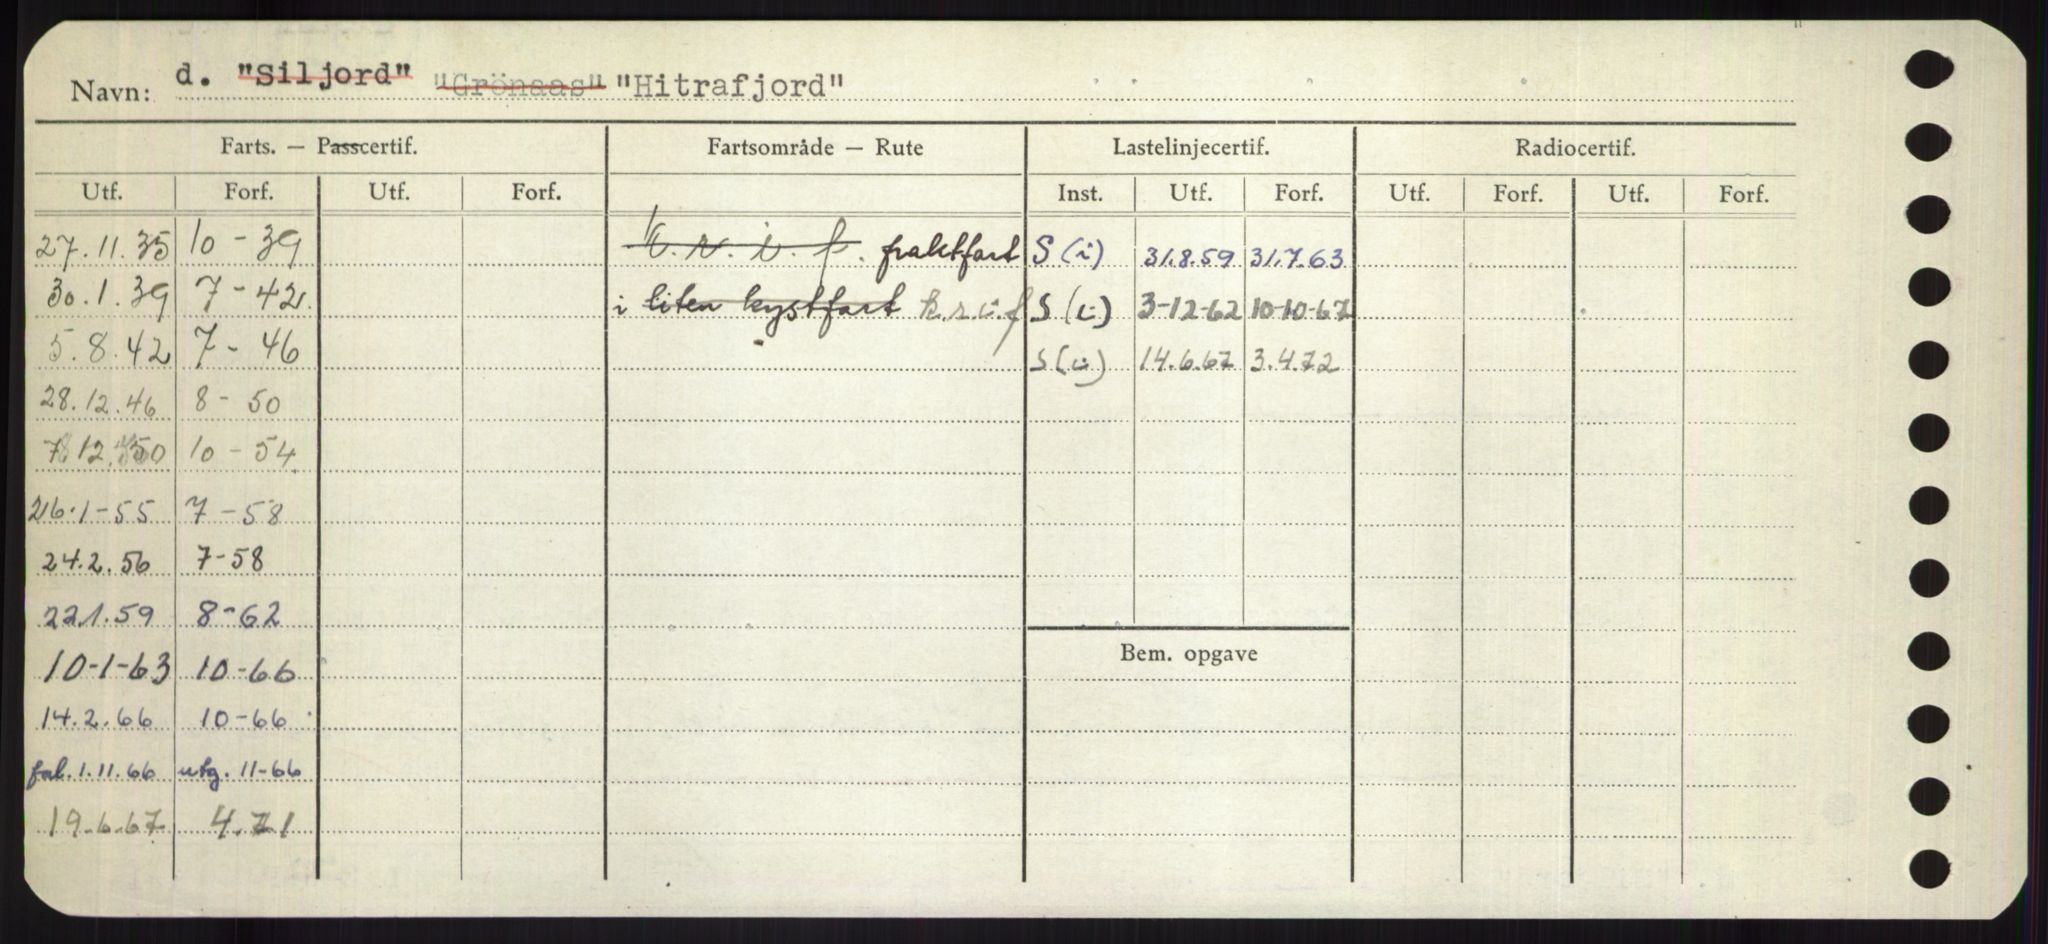 Navn: d. "Siljord" "Grönaas" "Hitrafjord"
Farts. — Passcertif. Fartsområde — Rute Lastelinjecertif. Radiocertif.
Utf. Forf. Utf. Forf. Inst. Utf. Forf. Utf. Forf. Utf. Forf.
27.11.35 10-39 k.r.i.f. fraktfart S(i) 31.8.59 31.7.63
30.1.39 7-42. i liten kystfart k.r.i.f S(i) 3-12-62 10-10-67
5.8.42 7-46 S(i) 14.6.67 3.4.72
28.12.46 8-50
7.12.50 10-54
26.1-55 7-58
24.2.56 7-58
22.1.59 8-62
Bem. opgave
10-1-63 10-66
14.2.66 10-66
fal. 1.11.66 utg. 11-66
19.6.67 4.71